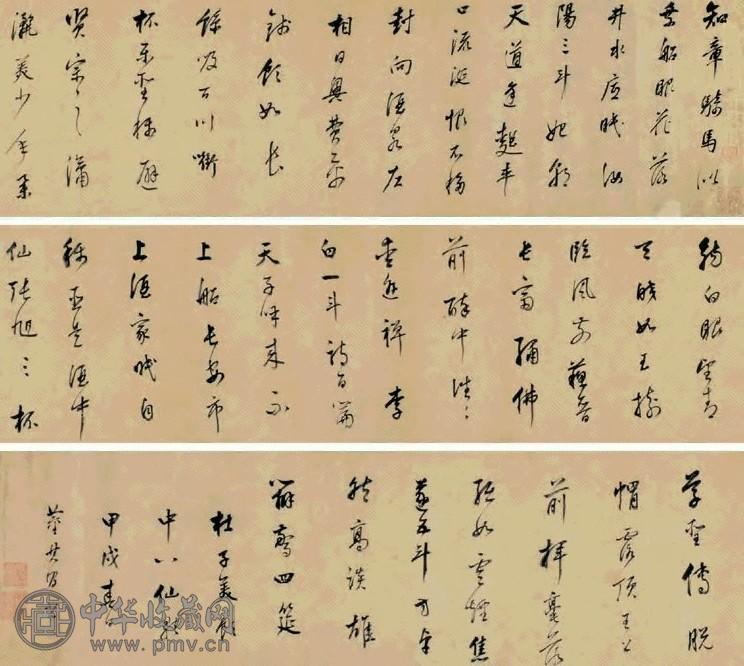 知章騎馬似
乘船眼花落
井水底眠汝
陽三斗始朝
天道逢麴車
口流涎恨不移
封向酒泉左
相日興費萬
錢飲如長
鯨吸百川銜
杯樂聖稱避
賢宗之瀟
灑美少年舉
觴白眼望青
天皎如玉樹
臨風前蘇晉
長齋繡佛
前醉中往〻
愛逃禪李
白一斗詩百篇
天子呼來不
上船長安市
上酒家眠自
稱臣是酒中
仙張旭三杯
草聖傳脫
帽露頂王公
前揮毫落
紙如雲煙焦
遂五斗方卓
然高談雄
辯驚四筵
杜子美飲
中八仙歌
甲戌春
董其昌
中华收藏网
www.pmv.cn